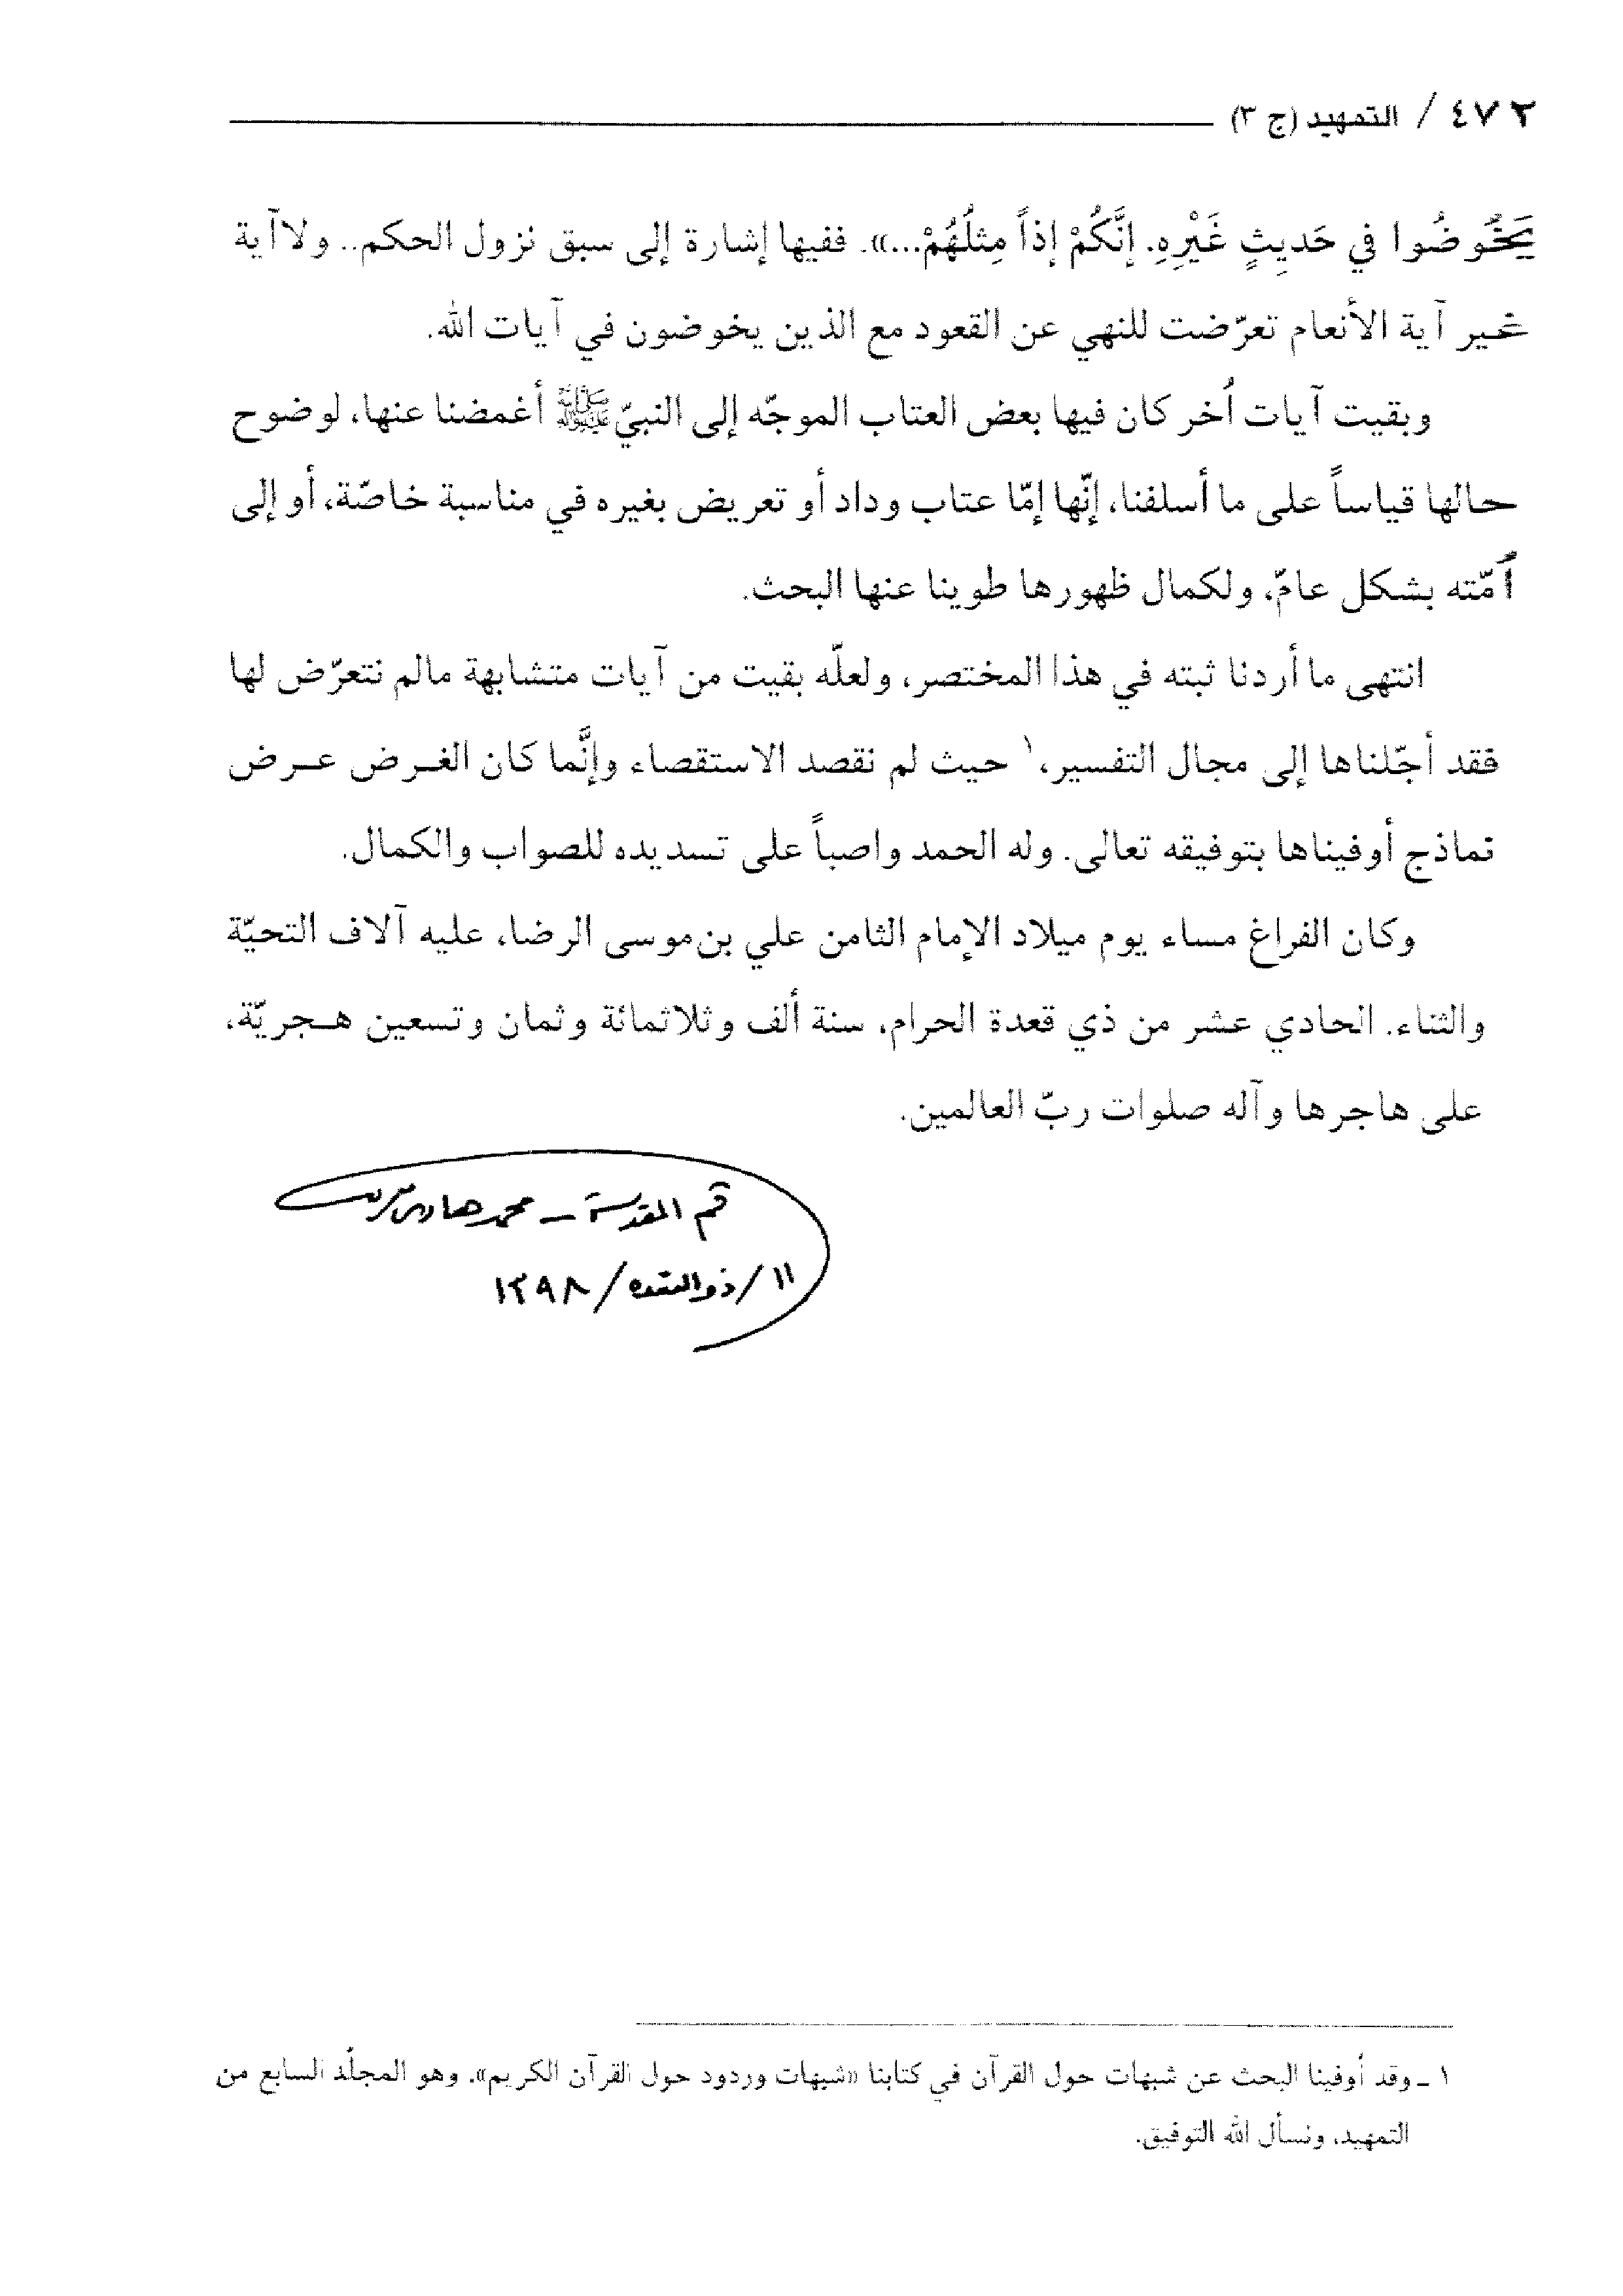 ٤٧٢ / التمهيد (ج ٣)
يَخُوضُوا في حَديثٍ غَيْرِهِ. إنَّكُمْ إذاً مِثلُهُمْ...». ففيها إشارة إلى سبق نزول الحكم.. ولاآية
غير آية الأنعام تعرّضت للنهي عن القعود مع الذين يخوضون في آيات الله.
وبقيت آيات اُخر كان فيها بعض العتاب الموجّه إلى النبيّ ﷺ أغمضنا عنها، لوضوح
حالها قياساً على ما أسلفنا، إنّها إمّا عتاب وداد أو تعريض بغيره في مناسبة خاصّة، أو إلى
اُمّته بشكل عامّ، ولكمال ظهورها طوينا عنها البحث.
انتهى ما أردنا ثبته في هذا المختصر، ولعلّه بقيت من آيات متشابهة مالم نتعرّض لها
فقد أجّلناها إلى مجال التفسير،١ حيث لم نقصد الاستقصاء وإنَّما كان الغرض عرض
نماذج أوفيناها بتوفيقه تعالى. وله الحمد واصباً على تسديده للصواب والكمال.
وكان الفراغ مساء يوم ميلاد الإمام الثامن علي بن‌موسى الرضا، عليه آلاف التحيّة
والثناء. الحادي عشر من ذي قعدة الحرام، سنة ألف وثلاثمائة وثمان وتسعين هجريّة،
على هاجرها وآله صلوات ربّ العالمين.
قم المقدسة ـ محمد هادي معرفت
١١/ذوالقعده/١٣٩٨
١ ـ وقد أوفينا البحث عن شبهات حول القرآن في كتابنا «شبهات وردود حول القرآن الكريم». وهو المجلّد السابع من
التمهيد، ونسأل الله التوفيق.